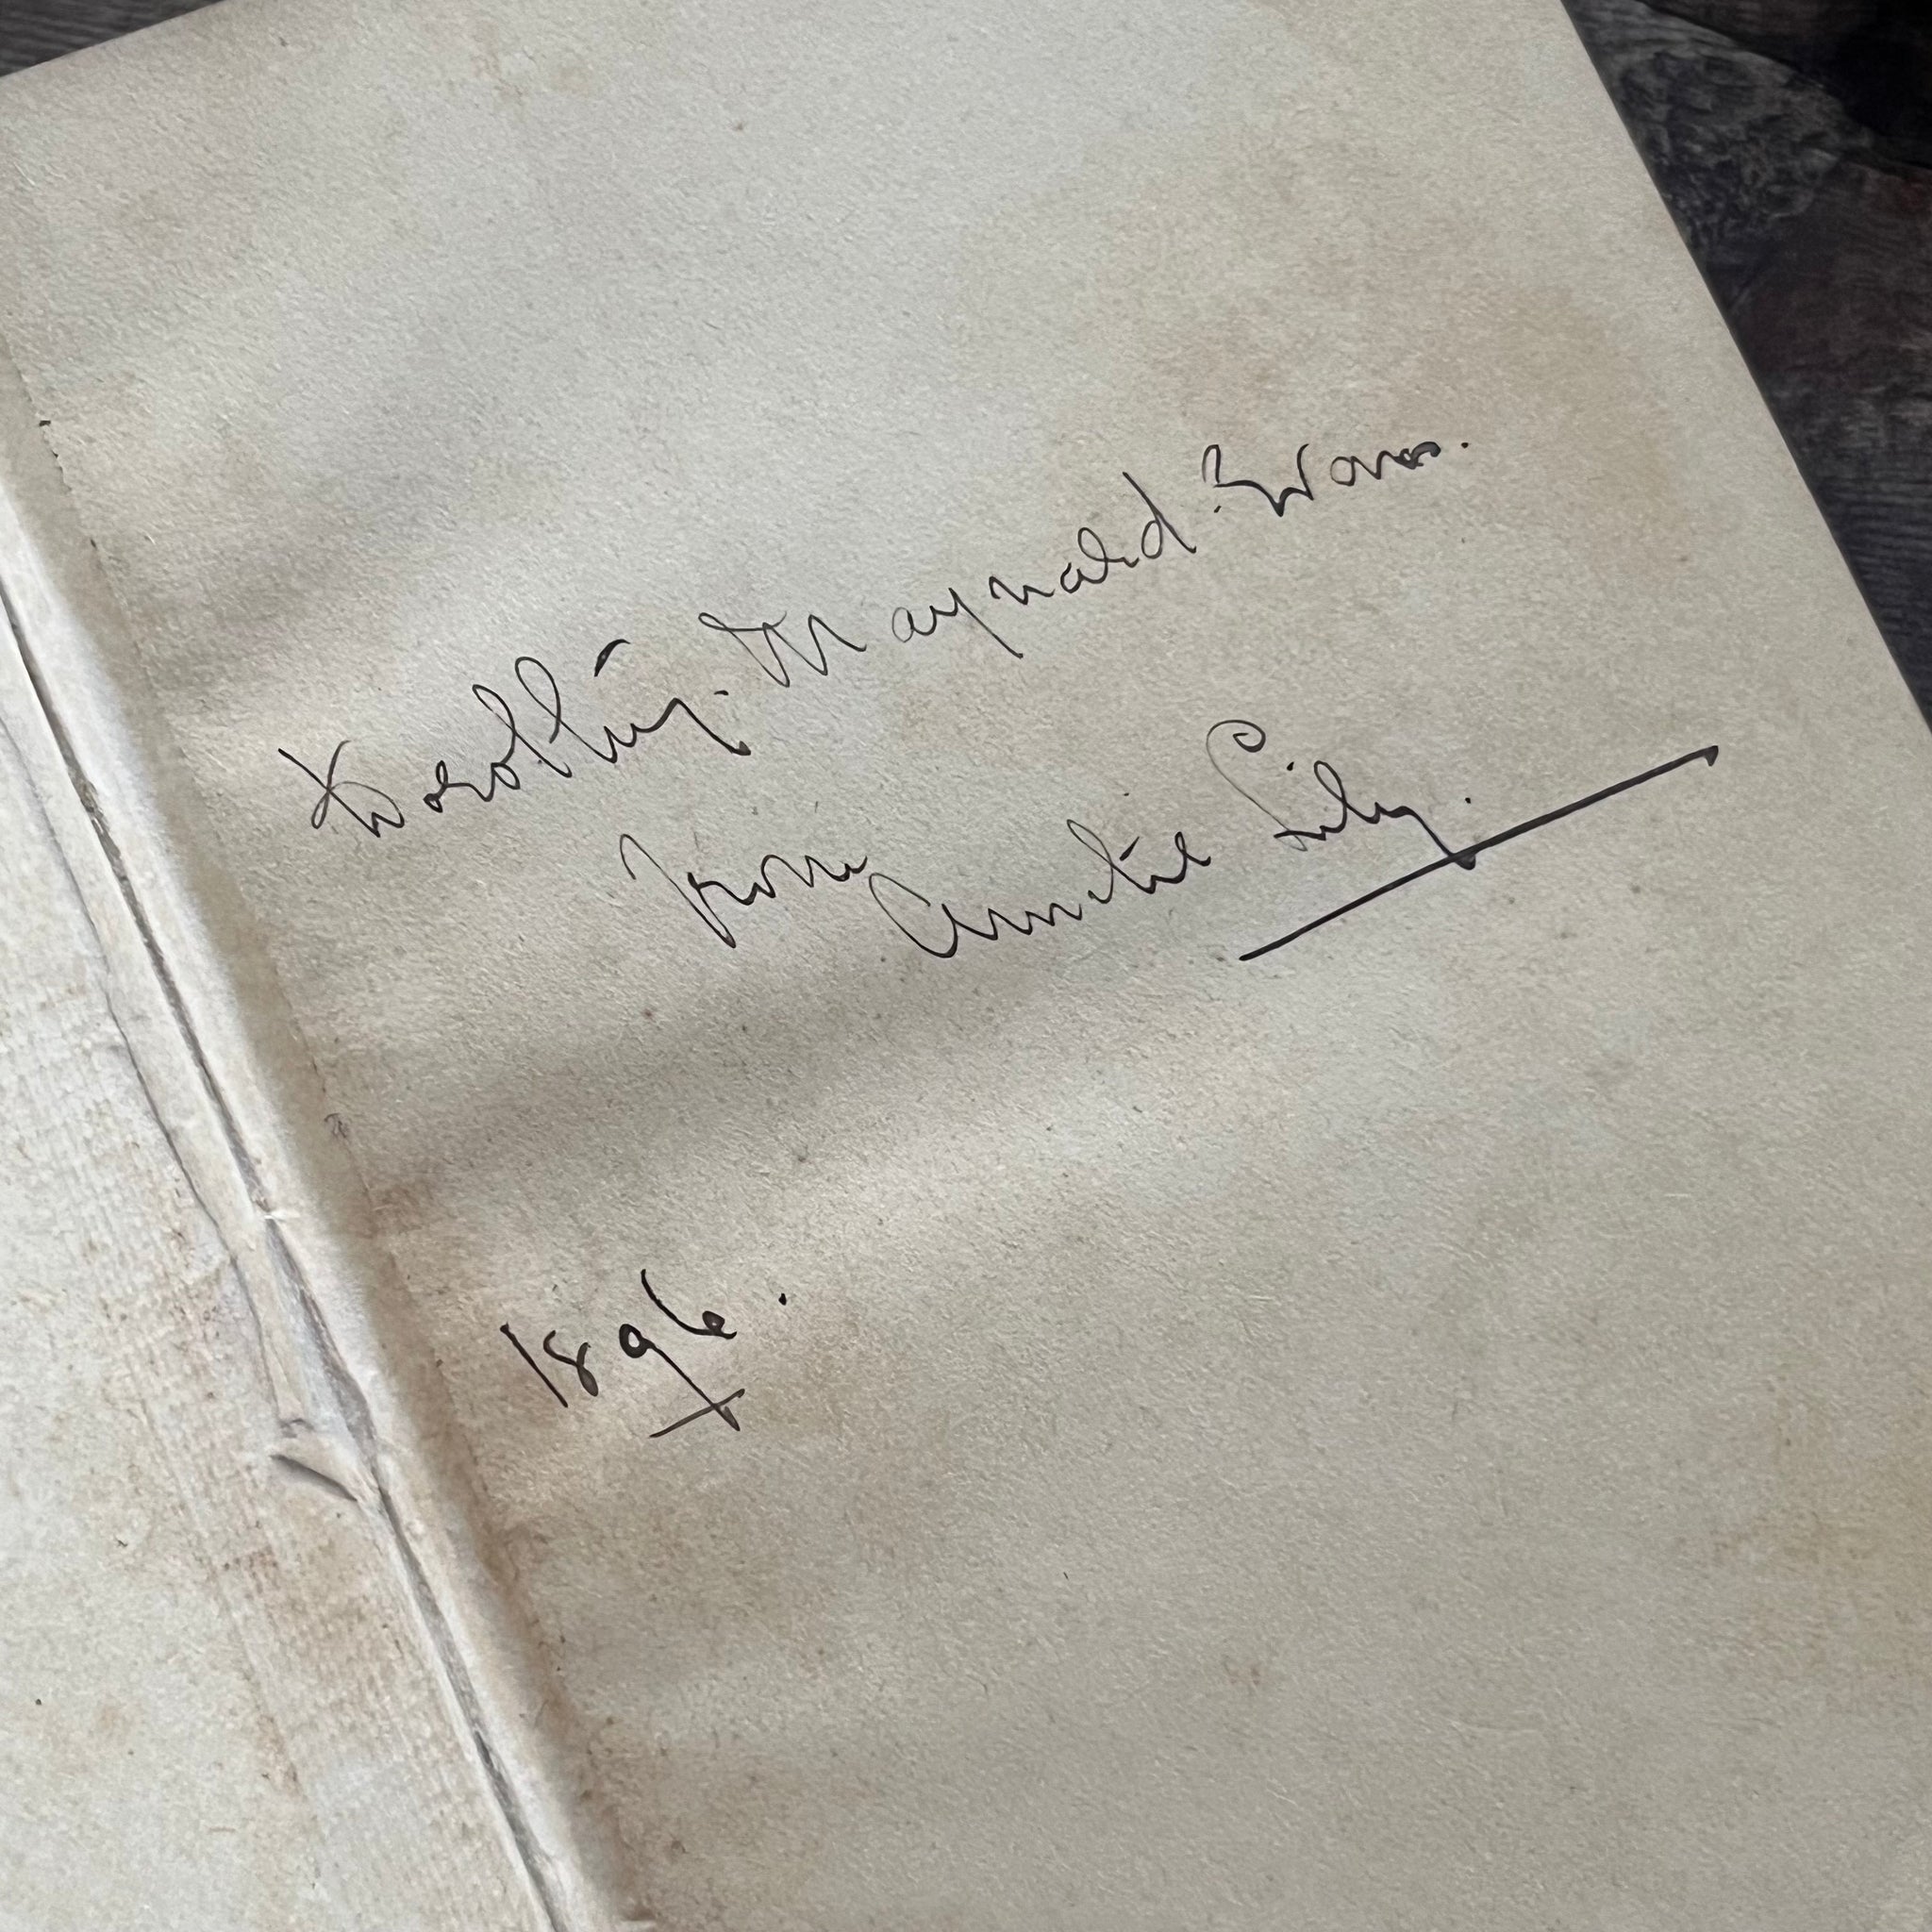 Dorothy. Maynard. Evans.
from Auntie Lily.
1896.